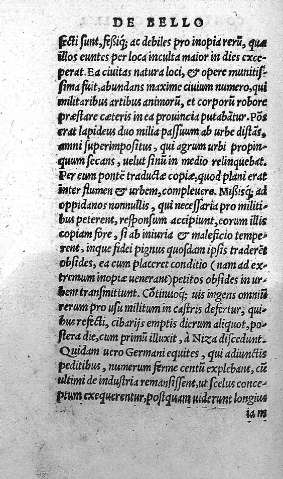 DE BELLO
fecti sunt, fessiq; ac debiles pro inopia rerū, quæ
illos euntes per loca inculta maior in dies exce-
perat. Ea ciuitas natura loci, & opere munitis-
sima fuit, abundans maxime ciuium numero, qui
militaribus artibus animorū, et corporū robore
præstare cæteris in ea prouincia putabātur. Pōs
erat lapideus duo milia passuum ab urbe distās,
amni superimpositus, qui agrum urbi propin-
quum secans, uelut sinū in medio relinquebat.
Per eum pontē traductæ copiæ, quod plani erat
inter flumen & urbem, compleuere. Missisq; ad
oppidanos nonnullis, qui necessaria pro militi-
bus peterent, responsum accipiunt, eorum illis
copiam fore, si ab iniuria & maleficio tempe-
rent, inque fidei pignus quosdam ipsis traderēt
obsides, ea cum placeret conditio (nam ad ex-
tremum inopiæ uenerant) petitos obsides in ur-
bem transmittunt. Cōtinuoq; uis ingens omniū
rerum pro usu militum in castris defertur, qui-
bus refecti, cibarijs emptis dierum aliquot, po-
stera die, cum primū illuxit, à Niza discedunt.
Quidam uero Germani equites, qui adiunctis
peditibus, numerum ferme centū explebant, cū
ultimi de industria remansissent, ut scelus conce-
ptum exequerentur, postquam uiderunt longius
iam